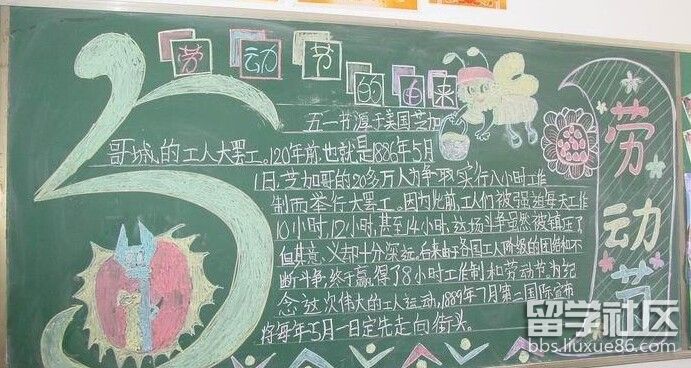 5
劳动节的由来
五一节源于美国芝加
哥城的工人大罢工。120年前,也就是1886年5月
1日,芝加哥的20多万人为争取实行八小时工作
制而举行大罢工。因为此前,工人们被强迫每天工作
10小时,12小时,甚至14小时,这场斗争虽然被镇压了
但其意义却十分深远,后来由于各国工人阶级的团结和
不断斗争,终于赢得了8小时工作制和劳动节,为纪
念这次伟大的工人运动,1889年7月第二国际宣布
将每年5月一日定先走向街头。
劳动节
留学社区
bbs.liuxue86.com